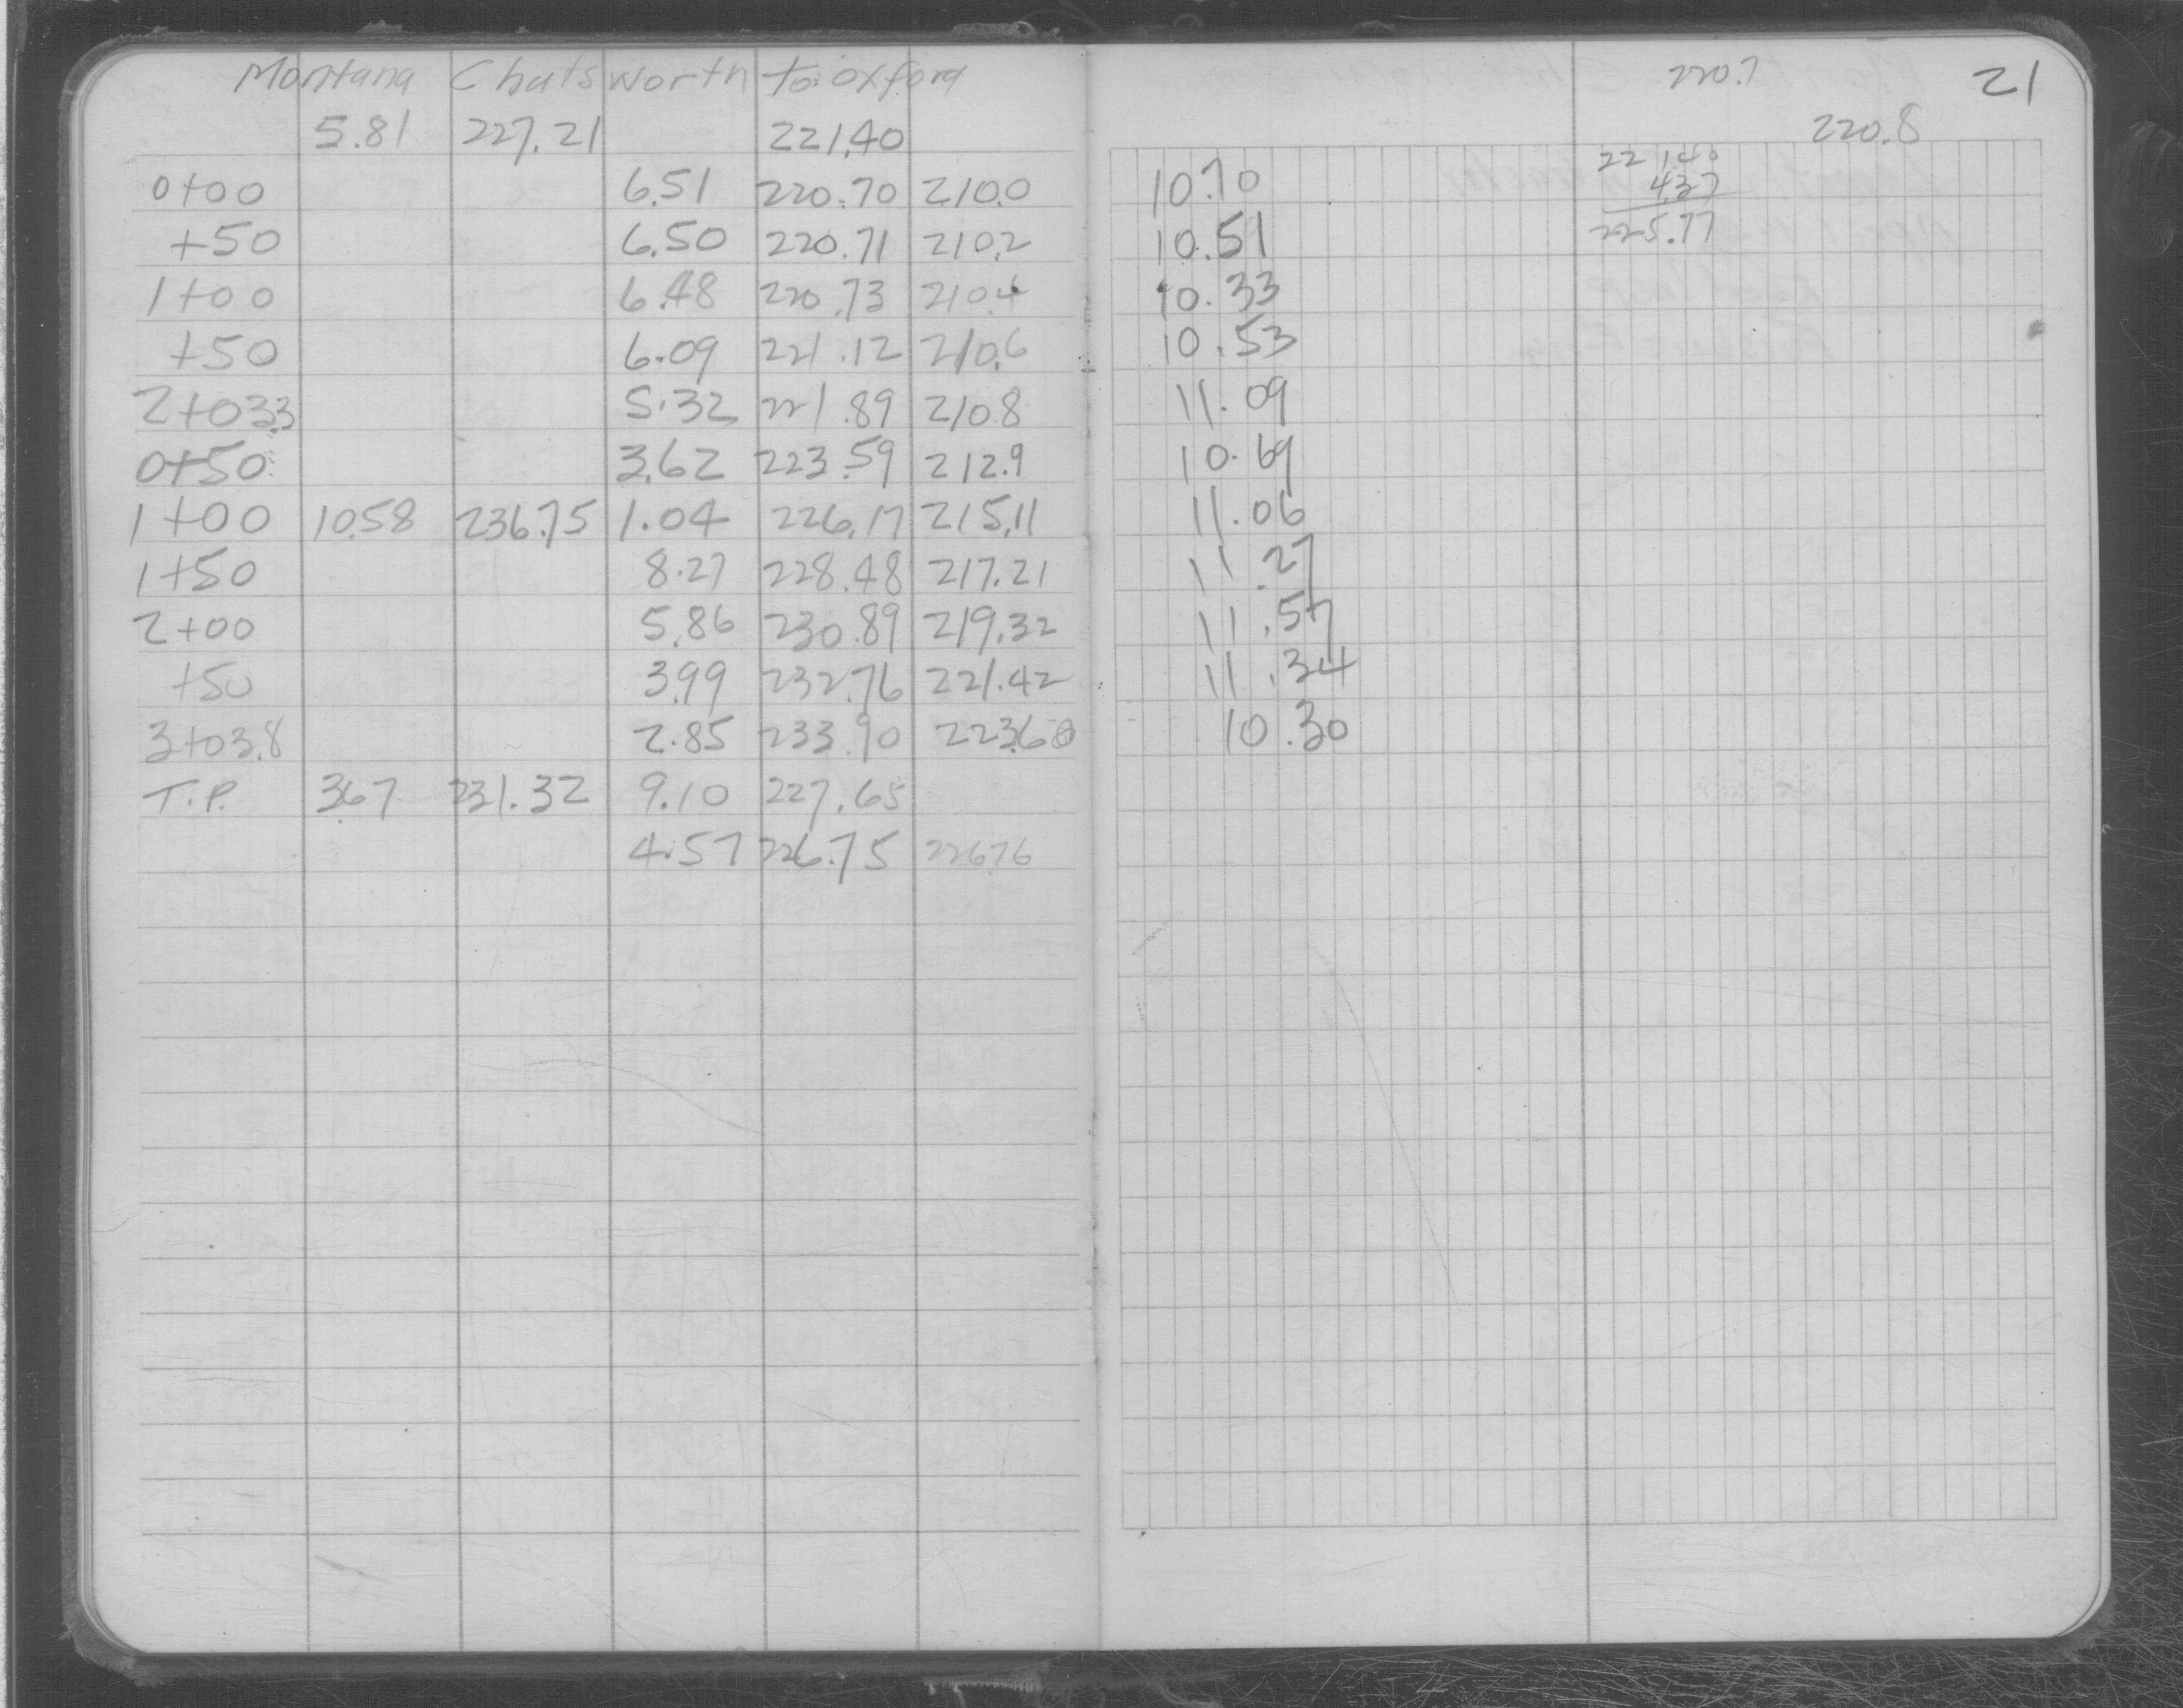 Montana Chatsworth to Oxford
5.81 227.21 221.40
0+00 6.51 220.70 210.0
+50 6.50 220.71 210.2
1+00 6.48 220.73 210.4
+50 6.09 221.12 210.6
2+03.3 5.32 221.89 210.8
0+50 3.62 223.59 212.9
1+00 10.58 236.75 1.04 226.17 215.11
1+50 8.27 228.48 217.21
2+00 5.86 230.89 219.32
+50 3.99 232.76 221.42
3+03.8 2.85 233.90 223.60
T.P. 3.67 231.32 9.10 227.65
4.57 226.75 226.76
220.7 21
220.8
10.70
10.51
10.33
10.53
11.09
10.69
11.06
11.27
11.57
11.34
10.30
221.40
4.37
225.77